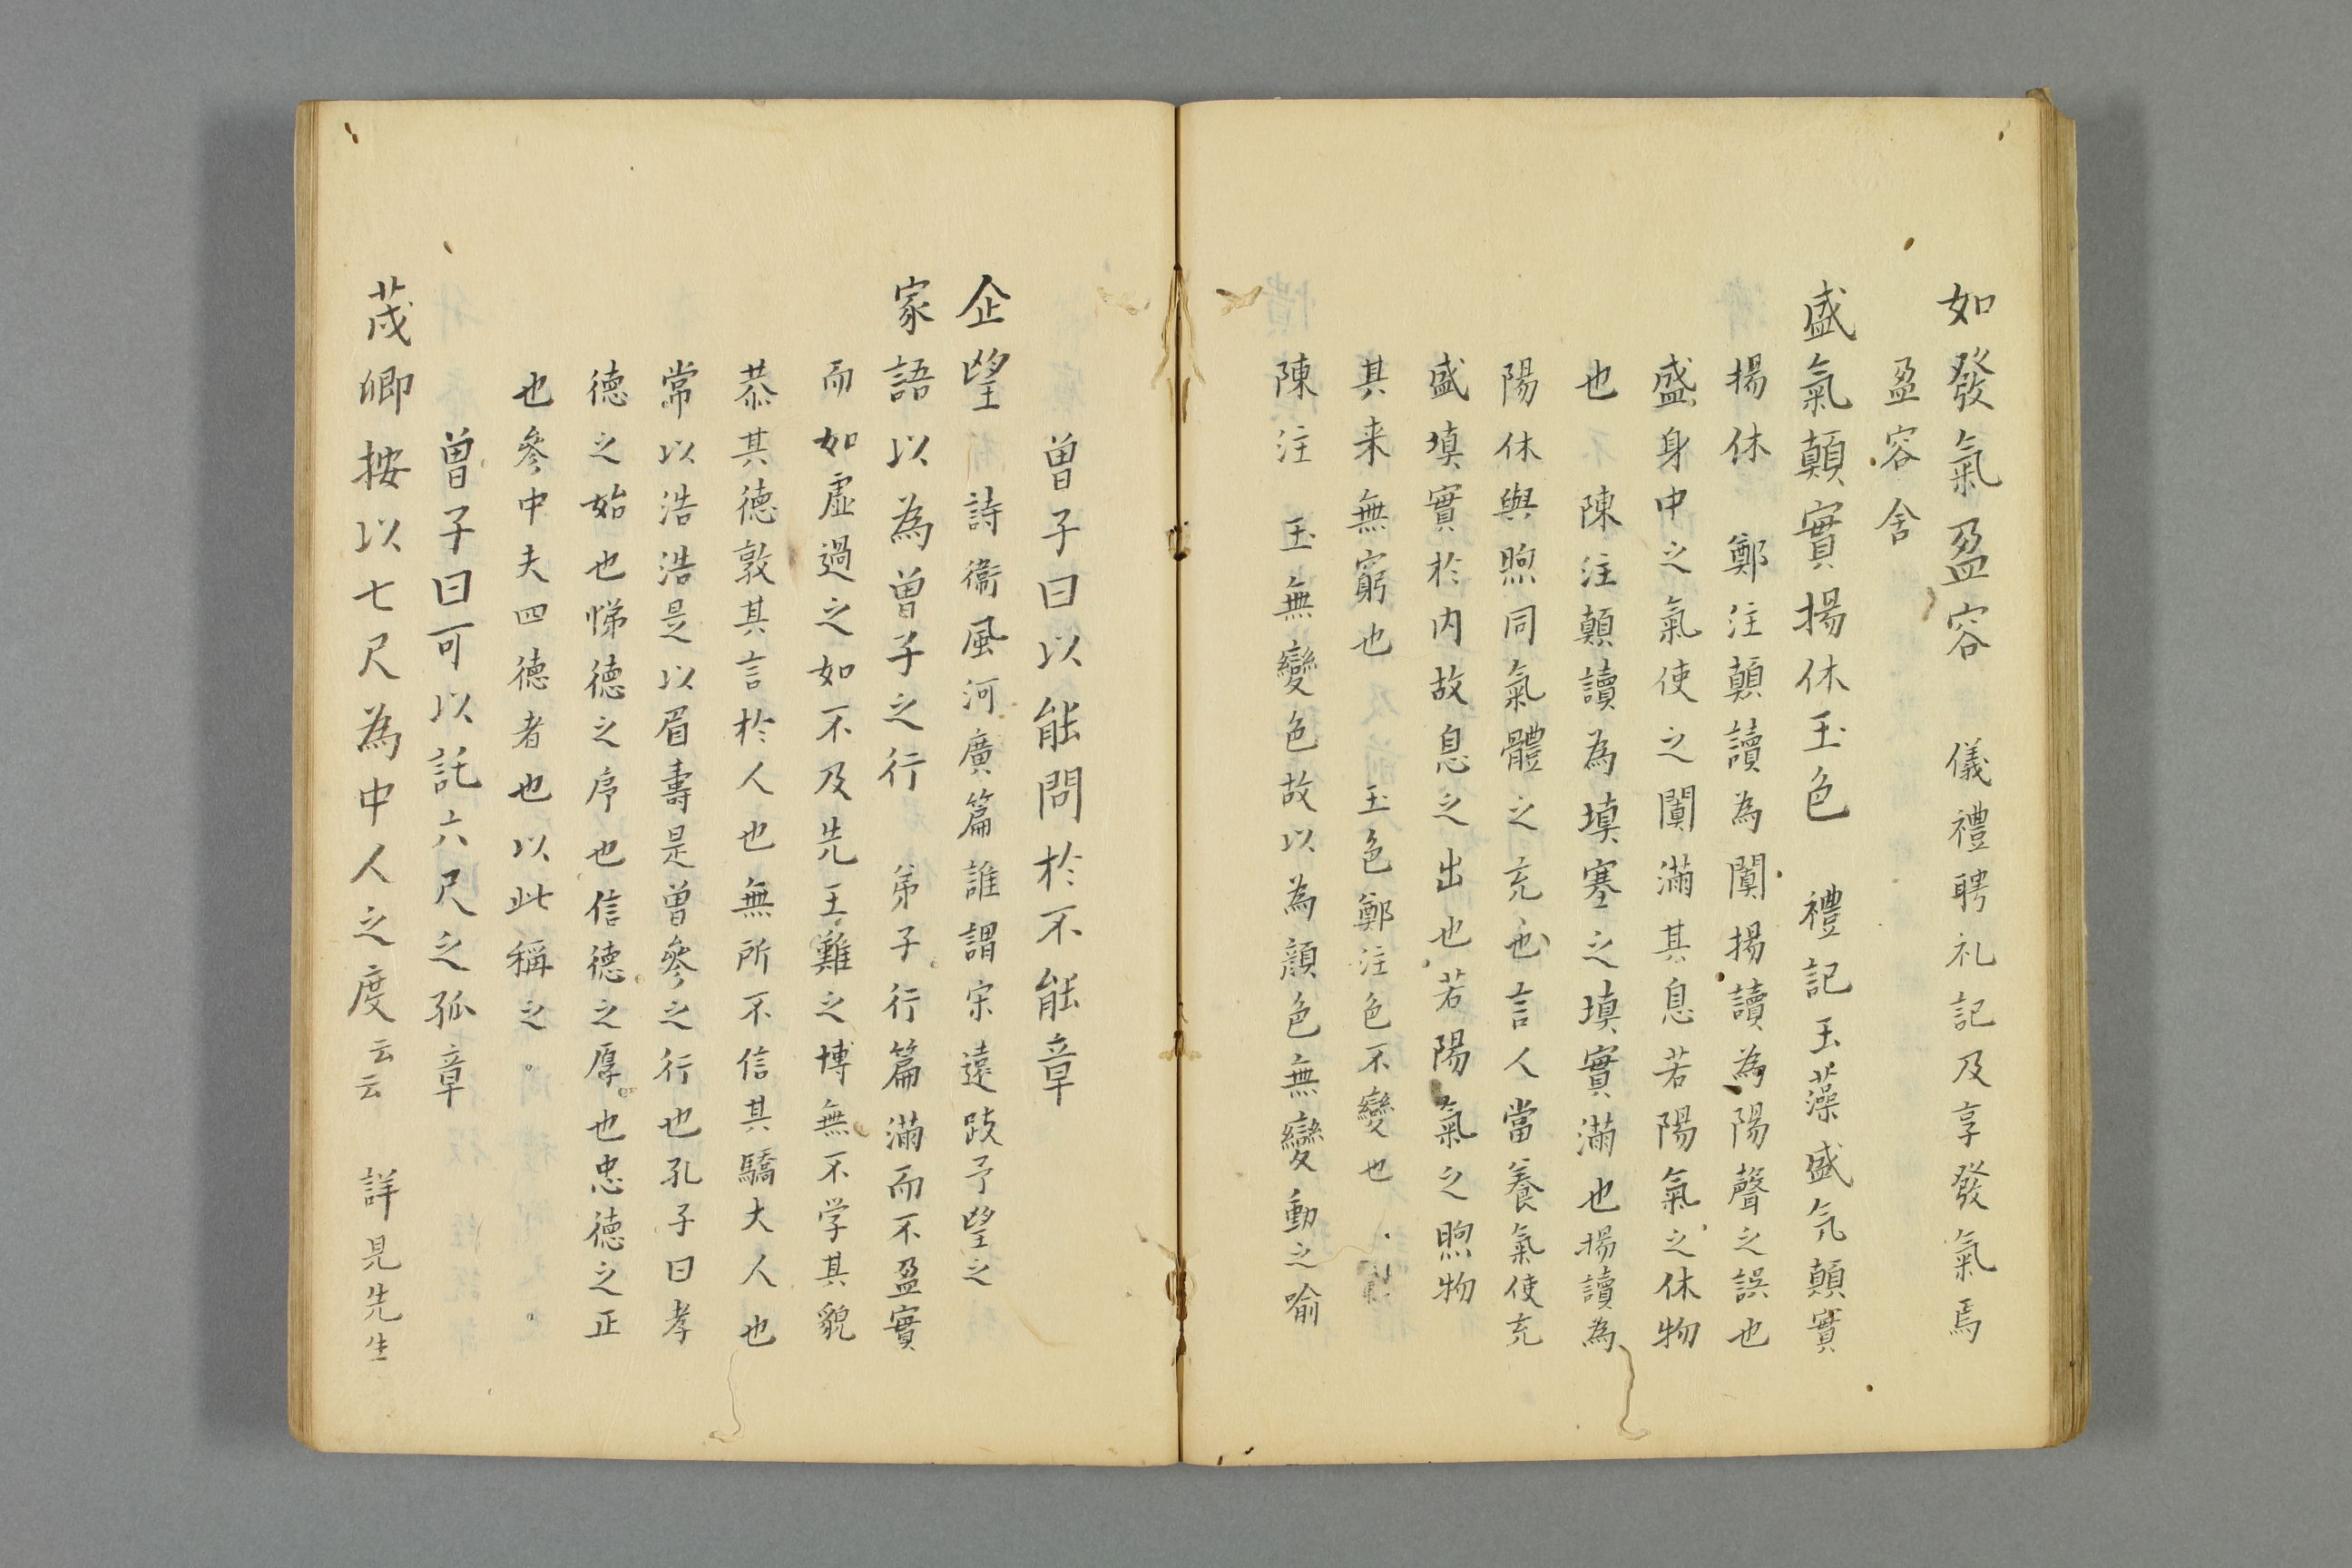 如發氣盈容　儀禮聘礼記及享發氣焉
盈容舍
盛氣顛實揚休玉色　禮記玉藻盛気顛實
揚休　鄭注顛讀為闐揚讀為陽聲之誤也
盛身中之氣使之闐滿其息若陽氣之休物
也　陳注顛讀為塡塞之塡實滿也揚讀為
陽休與煦同氣體之充也言人當養氣使充
盛塡實於内故息之出也若陽氣之煦物
其来無窮也　玉色鄭注色不變也
陳注　玉無變色故以為顔色無變動之喻
曾子曰以能問於不能章
企望　詩衛風河廣篇誰謂宋遠跂予望之
家語以為曾子之行　弟子行篇滿而不盈實
而如虚過之如不及先王難之博無不学其貌
恭其德敦其言於人也無所不信其驕大人也
常以浩浩是以眉壽是曾參之行也孔子曰孝
德之始也悌德之序也信德之厚也忠德之正
也參中夫四德者也以此稱之。
曾子曰可以託六尺之孤章
茂卿按以七尺為中人之度云云　詳見先生